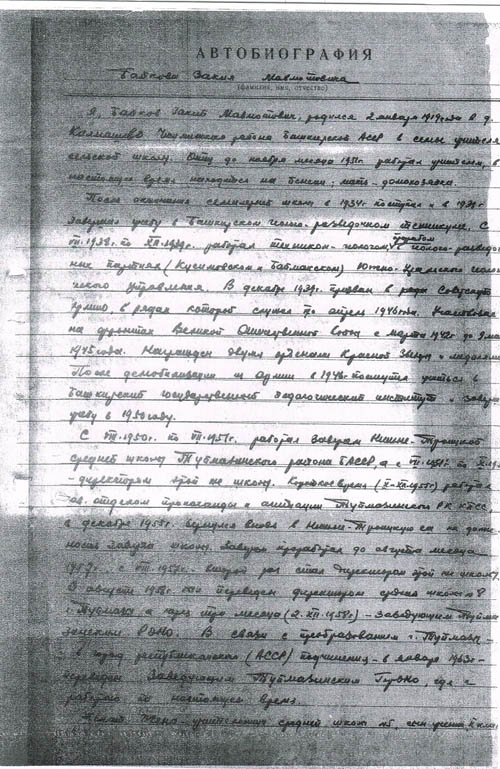 АВТОБИОГРАФИЯ
Байкова Закия Мавлютовича
(фамилия, имя, отчество)
Я, Байков Закий Мавлютович, родился 2 января 1919 года в д.
Калмашево Чекмагушевского района Башкирской АССР в семье учителя
сельской школы. Отец до ноября месяца 1951г. работал учителем, в
настоящее время находится на пенсии; мать - домохозяйка.
После окончания семилетней школы в 1934г. поступил и в 1938г.
завершил учебу в Башкирском геолого-разведочном техникуме. С
VII.1938г. по XII.1939г. работал техником-геологом в геолого-разведоч
ных партиях (Кусимовской и Баймакской) Южно-Уральского геологи
ческого управления. В декабре 1939г. призван в ряды Советской
Армии, в рядах которой служил по апрель 1946 года. Участвовал
на фронтах Великой Отечественной войны с марта 1942г до 9 мая
1945 года. Награжден двумя орденами Красной Звезды и медалями
После демобилизации из Армии в 1946г. поступил учиться в
Башкирский государственный педагогический институт и завершил
учебу в 1950 году.
С VIII.1950г. по VII.1951г. работал завучем Нижне-Троицкой
средней школы Туймазинского района БАССР, а с VIII.1951г. по
-директором этой же школы. Короткое время (X-XII.1955г) работал
зав. отделом пропаганды и агитации Туймазинского РК КПСС,
в декабре 1955г. вернулся вновь в Нижне-Троицкую с.ш. на долж-
ность завуча школы. Завучем проработал до августа месяца
1957г., с VIII.1957г. - второй раз стал директором этой же школы.
В августе 1958г. был переведен директором средней школы №8
г. Туймазы а через три месяца (2.XII.1958г) - заведующим Туйма
зинским РОНО. В связи с преобразованием г. Туймазы -
в город республиканского (АССР) подчинения - в январе 1963г -
переведен заведующим Туймазинским ГорОНО, где и
работаю по настоящее время.
Жена - учительница средней школы №5, сын ученик